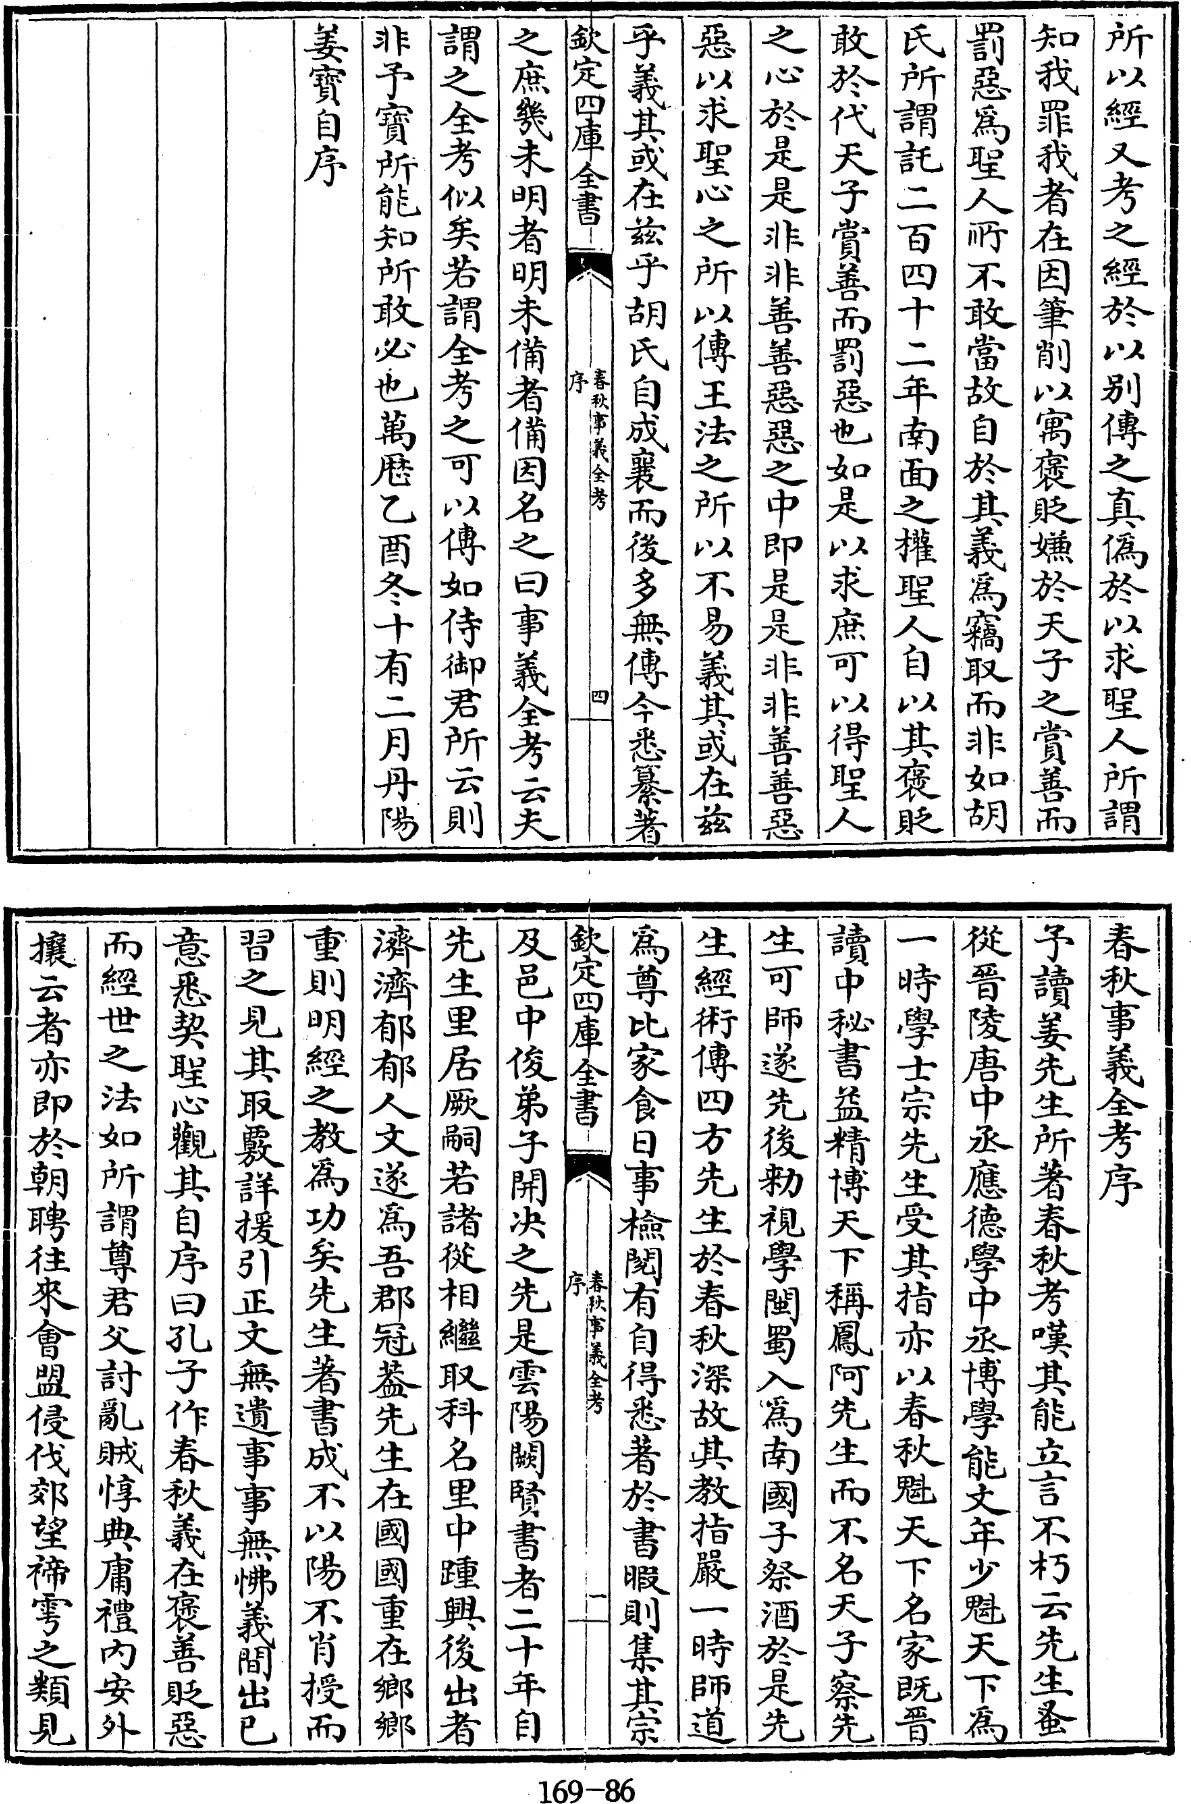 所以經又考之經於以别傳之真偽於以求聖人所謂
知我罪我者在因筆削以寓褒貶嫌於天子之賞善而
罰惡爲聖人所不敢當故自於其義爲竊取而非如胡
氏所謂託二百四十二年南面之權聖人自以其褒貶
敢於代天子賞善而罰惡也如是以求庶可以得聖人
之心於是是非非善善惡惡之中即是是非非善善惡
惡以求聖心之所以傳王法之所以不易義其或在兹
乎義其或在兹乎胡氏自成襄而後多無傳今悉纂著
欽定四庫全書
春秋事義全考
序
四
之庶幾未明者明未備者備因名之曰事義全考云夫
謂之全考似矣若謂全考之可以傳如侍御君所云則
非予寶所能知所敢必也萬厯乙酉冬十有二月丹陽
姜寶自序
春秋事義全考序
予讀姜先生所著春秋考嘆其能立言不朽云先生蚤
從晉陵唐中丞應德學中丞博學能文年少魁天下爲
一時學士宗先生受其指亦以春秋魁天下名家既晋
讀中秘書益精博天下稱鳳阿先生而不名天子察先
生可師遂先後勅視學閩蜀入爲南國子祭酒於是先
生經術傳四方先生於春秋深故其教指嚴一時師道
爲尊比家食日事檢閱有自得悉著於書暇則集其宗
欽定四庫全書
春秋事義全考
序
一
及邑中俊弟子開决之先是雲陽闕賢書者二十年自
先生里居厥嗣若諸從相繼取科名里中踵興後出者
濟濟郁郁人文遂爲吾郡冠葢先生在國國重在鄉鄉
重則明經之教爲功矣先生著書成不以陽不肖授而
習之見其取覈詳援引正文無遺事事無怫義間出已
意悉契聖心觀其自序曰孔子作春秋義在褒善貶惡
而經世之法如所謂尊君父討亂賊惇典庸禮内安外
攘云者亦即於朝聘往來會盟侵伐郊望禘雩之類見
169-86